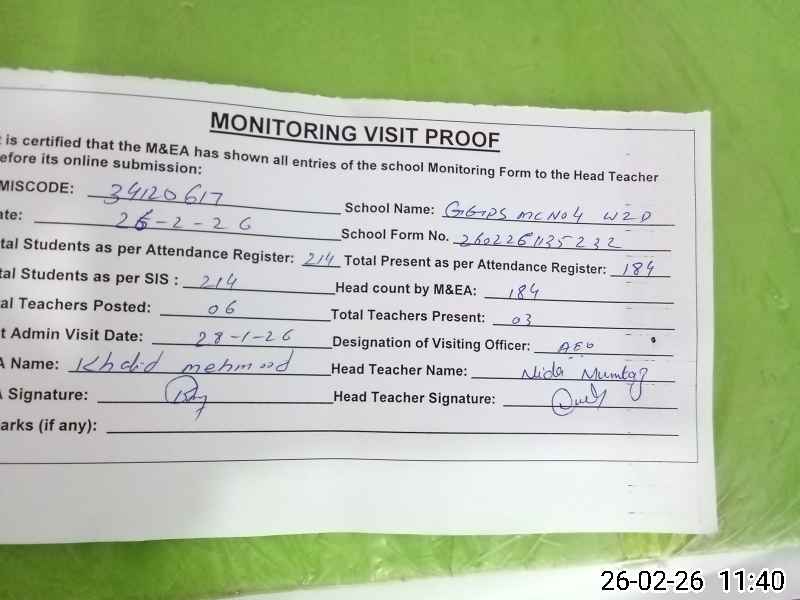 MONITORING VISIT PROOF
t is certified that the M&EA has shown all entries of the school Monitoring Form to the Head Teacher
efore its online submission:
MISCODE: 34120617 School Name: GGPS MC NO 4 WZD
ate: 26-2-26 School Form No. 2602261135232
tal Students as per Attendance Register: 214 Total Present as per Attendance Register: 184
tal Students as per SIS : 214 Head count by M&EA: 184
al Teachers Posted: 06 Total Teachers Present: 03
t Admin Visit Date: 28-1-26 Designation of Visiting Officer: AEO
A Name: Khalid mehmood Head Teacher Name: Nida Mumtaz
A Signature: Head Teacher Signature:
arks (if any):
26-02-26 11:40